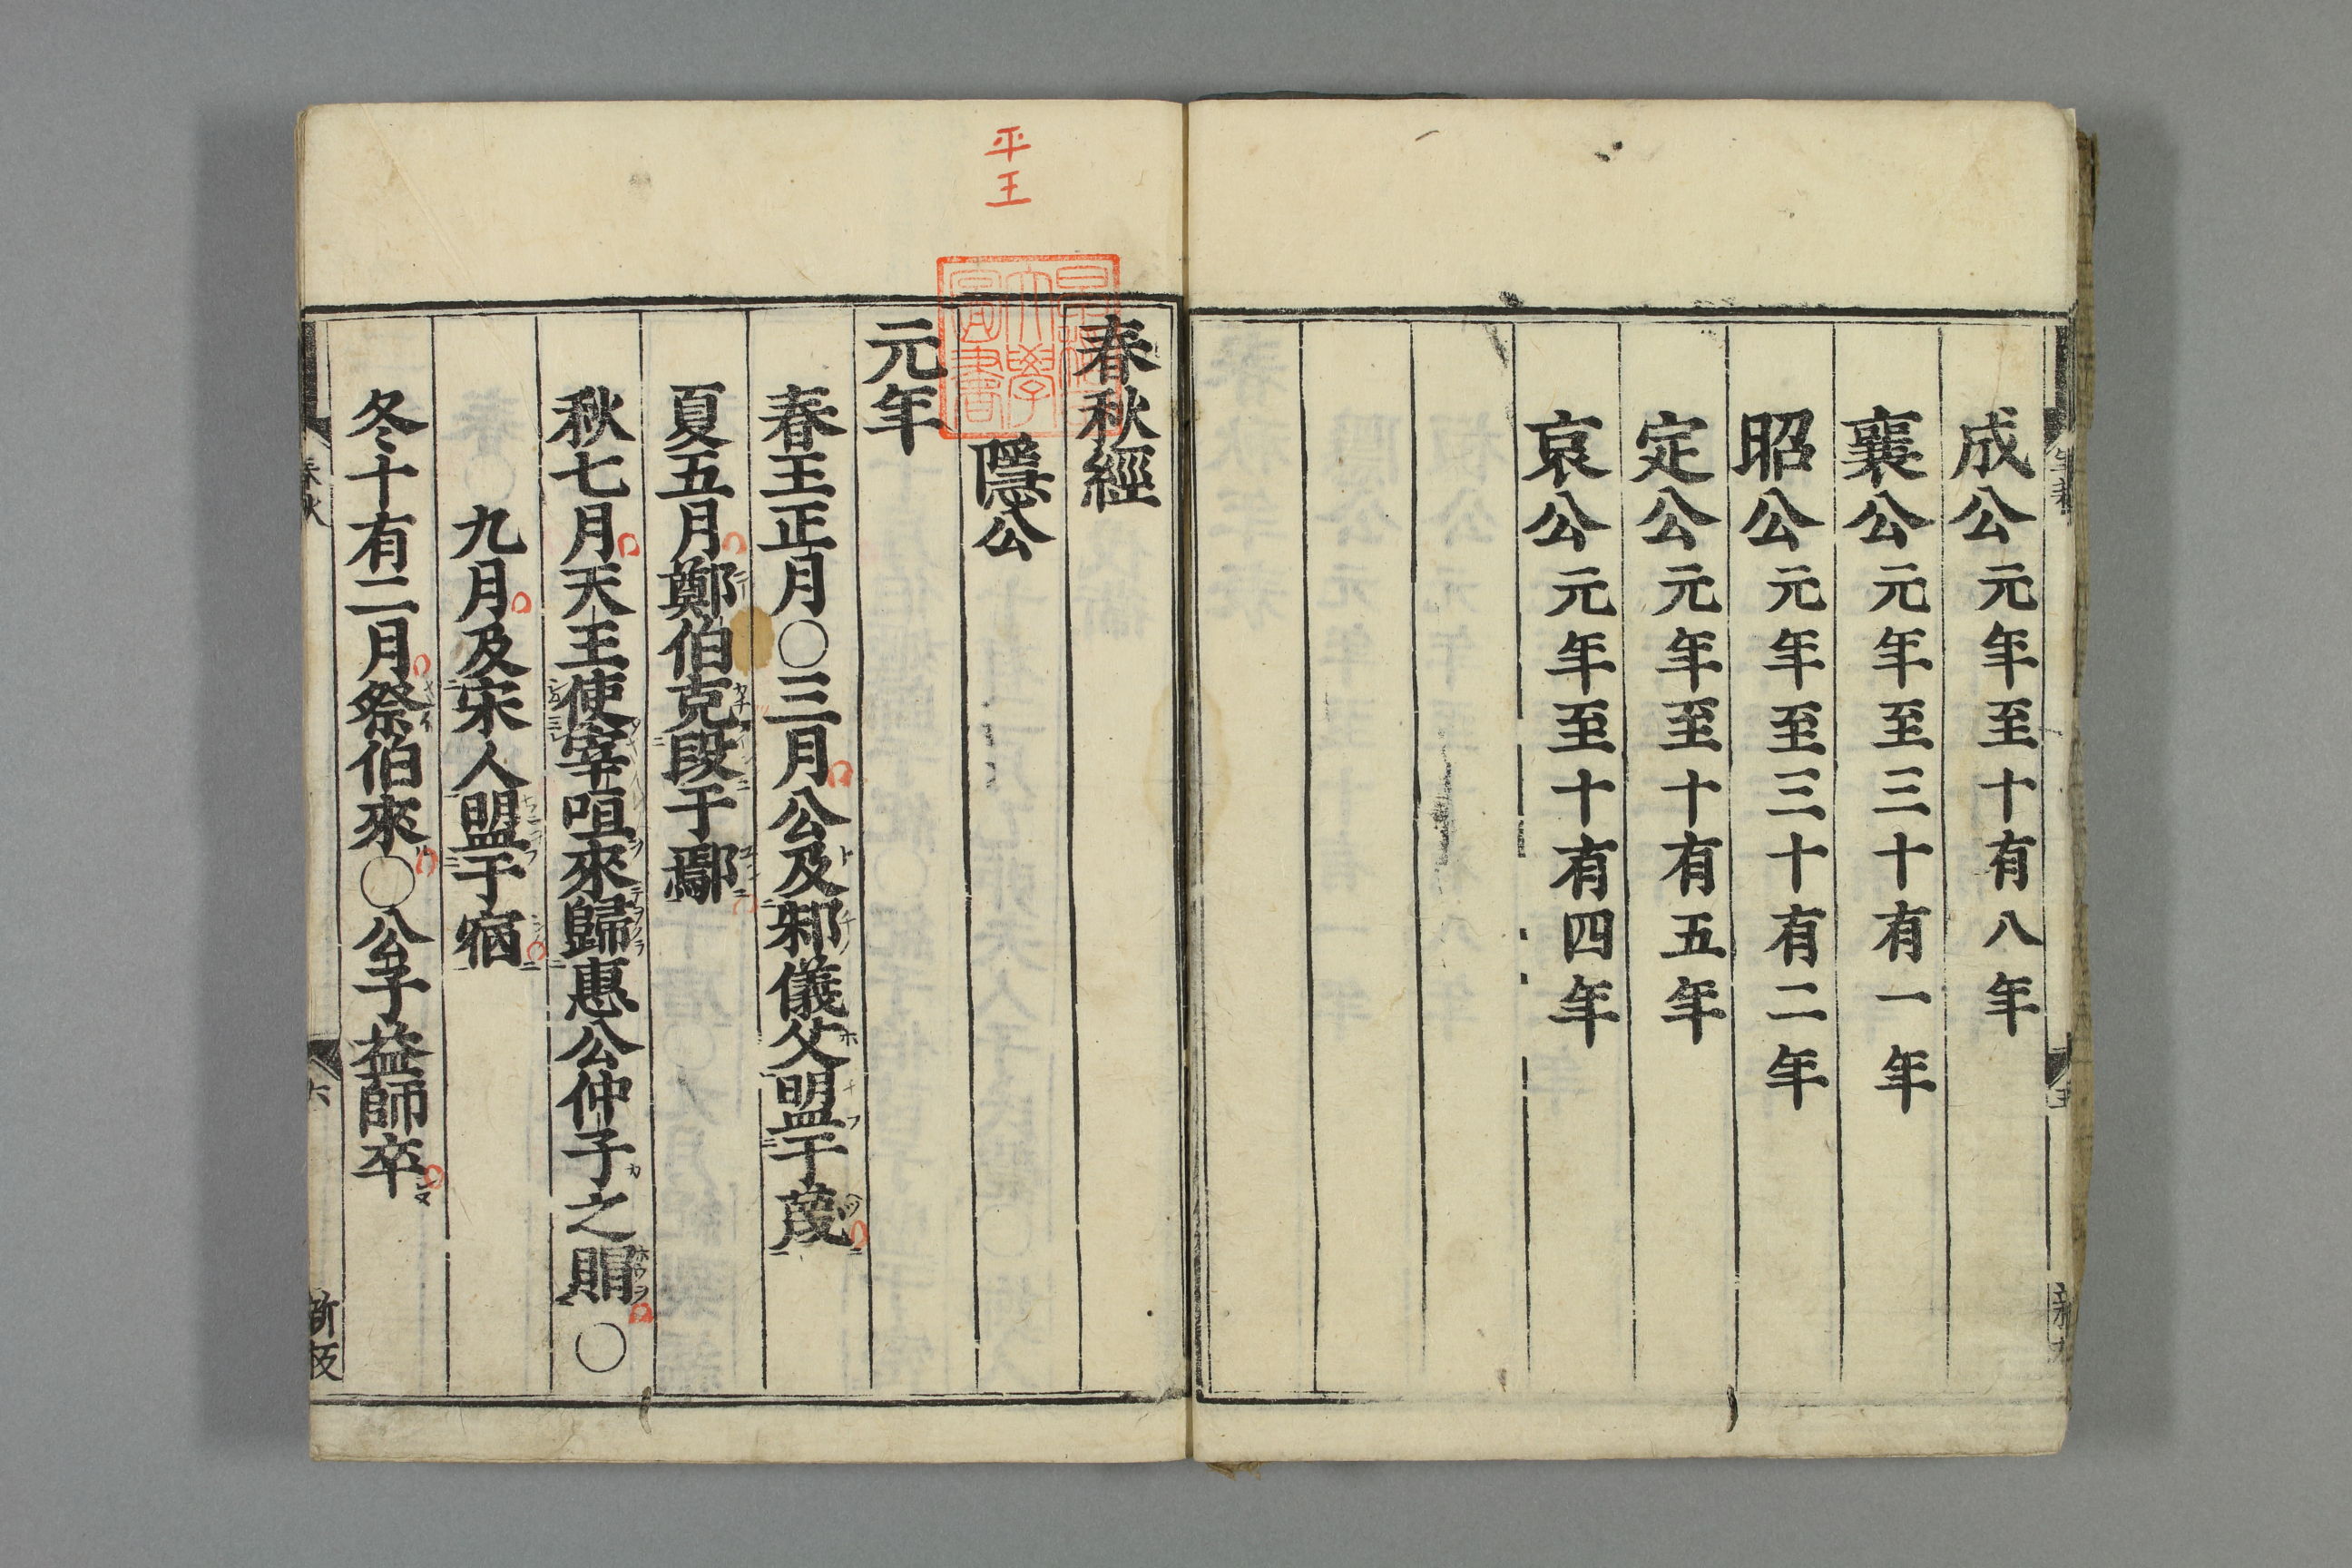 成公元年至十有八年
襄公元年至三十有一年
昭公元年至三十有二年
定公元年至十有五年
哀公元年至十有四年
平王
春秋經
隱公
元年
春王正月○三月公及邾儀父盟于蔑
夏五月鄭伯克段于鄢
秋七月天王使宰咺來歸惠公仲子之賵○
九月及宋人盟于宿
冬十有二月祭伯來○公子益師卒
春秋
六
新板